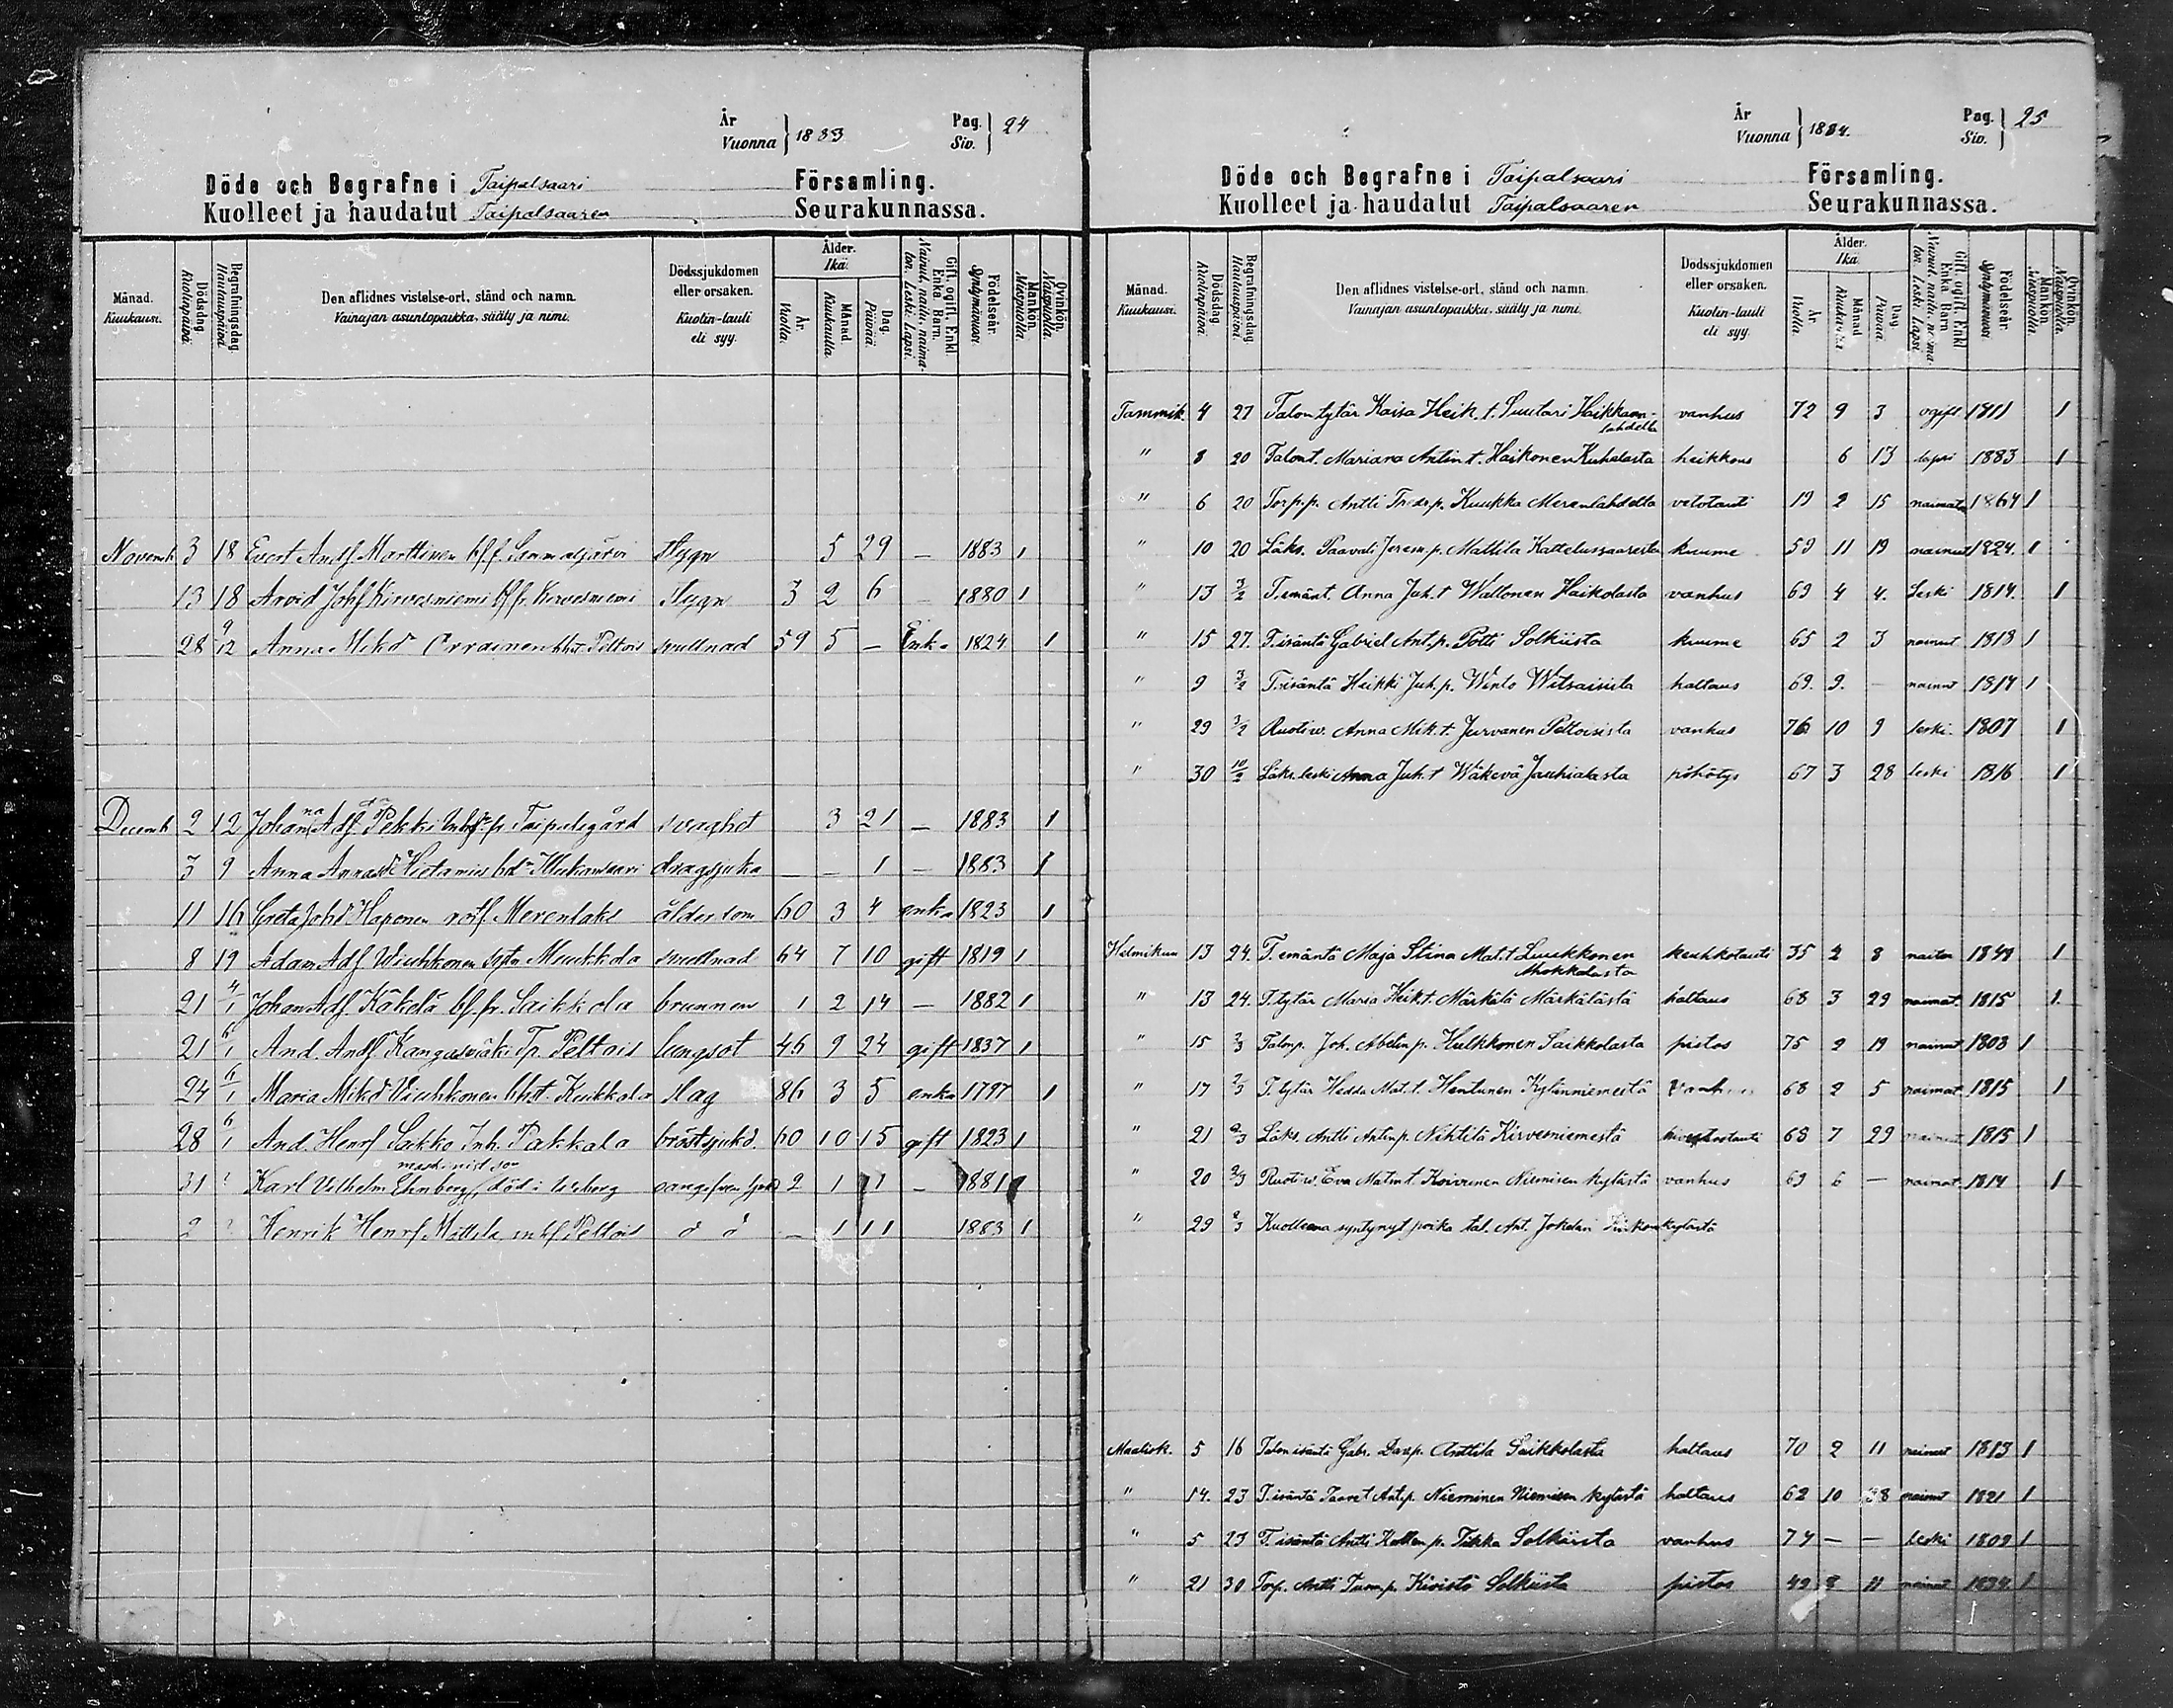 År
Vuonna } 1883
Pag.
Siv. } 24
Döde och Begrafne i Taipalsaari Församling.
Kuolleet ja haudatut Taipalsaaren Seurakunnassa.
Månad. Kuukausi. Dödsdag. Kuolinpäivä. Begrafningsdag. Hautauspäivä. Den aflidnes vistelse-ort, stånd och namn. Vainajan asuntopaikka, sääty ja nimi. Dödssjukdomen eller orsaken. Kuolin-tauti eli syy. Ålder. Ikä. År. Vuotta. Månad. Kuukautta. Dag. Päivää. Gift, ogift. Enkl. Enka. Barn. Nainut, naitu, naimaton. Leski. Lapsi. Födelseår. Syntymävuosi. Mankön. Miespuolia. Qvinkön. Naispuolia.
Novemb. 3 18 Evert Andf Marttinen Slygn 5 29 — 1883 1
13 18 Arvid Johf Kirvesniemi bf. fr. Kirvesniemi Slygn 3 2 6 — 1880 1
28 9/12 Anna Mikd Orrainen Peltois svullnad 59 5 — Enka 1824 1
Decemb 2 12 Johanna Adf Pekki fr. Taipalegård svaghet 3 21 — 1883 1
3 9 Anna Annasd Hietamies dragsjuka — — 1 — 1883 1
11 16 Greta Johd Haponen Merenlaks ålderdom 60 3 4 enka 1823 1
8 19 Adam Adf Wiuhkonen Muukkola svullnad 64 7 10 gift 1819 1
21 4/1 Johan Adf Käkelä bf. fr. Saikkola brunnen 1 2 14 — 1882 1
21 6/1 And. Andf Kangasväki Tp. Peltois lungsot 46 9 24 gift 1837 1
24 6/1 Maria Mikd Wiuhkonen Kuukkola slag 86 3 5 enka 1797 1
28 6/1 And. Henrf Sakko Inh. Pakkala bröstsjukd. 60 10 15 gift 1823 1
maskinist son
31 ? Karl Wilhelm Ehnberg, död i Wiborg 2 1 11 — 1881
2 ? Henrik Henrf Mattila Peltois d d — 1 11 1883 1
År
Vuonna } 1884.
Pag.
Siv. } 25
Döde och Begrafne i Taipalsaari Församling.
Kuolleet ja haudatut Taipalsaaren Seurakunnassa.
Månad. Kuukausi. Dödsdag. Kuolinpäivä. Begrafningsdag. Hautauspäivä. Den aflidnes vistelse-ort, stånd och namn. Vainajan asuntopaikka, sääty ja nimi. Dödssjukdomen eller orsaken. Kuolin-tauti eli syy. Ålder. Ikä. År. Vuotta. Månad. Kuukautta. Dag. Päivää. Gift, ogift. Enkl. Enka. Barn. Nainut, naitu, naimaton. Leski. Lapsi. Födelseår. Syntymävuosi. Mankön. Miespuolia. Qvinkön. Naispuolia.
Tammik. 4 27 Talon tytär Kaisa Heik. t. Suutari Haikkaan- vanhus 72 9 3 ogift 1811 1
lahdelta
" 8 20 Talont. Mariana Antin t. Haikonen Kuhalasta heikkous 6 13 lapsi 1883 1
" 6 20 Torp.p. Antti Kuukka Merenlahdelta vetotauti 19 2 15 naimaton 1864 1
" 10 20 Läks. Paavali Jerem. p. Mattila Kattelussaaresta kuume 59 11 19 nainut 1824. 1
" 13 3/2 T.emänt. Anna Juh. t Waltonen Haikolasta vanhus 69 4 4. Leski 1814. 1
" 15 27. T.isäntä Gabriel Ant. p. Potti Solkiista kuume 65 2 3 nainut 1818 1
" 9 3/2 T.isäntä Heikki Juh. p. Wento Witsaisista haltaus 69. 9. — nainut 1814 1
" 29 3/2 Ruotiw. Anna Mik. t. Jurvanen Peltoisista vanhus 76 10 9 leski. 1807 1
" 30 10/2 Läks. leski Anna Juh. t Wäkevä Jauhialasta pöhötys 67 3 28 leski 1816 1
Helmikuu 13 24. T. emäntä Maja Stina Mat. t Luukkonen keuhkotauti 35 2 8 naitu 1848 1
13 24. T. tytär Maria Heik t. Märkälä Märkälästä haltaus 68 3 29 naimat. 1815 1.
" 15 2/3 Talonp. Joh. Abelin p. Hulkkonen Saikkolasta pistos 75 2 19 nainut 1808 1
" 17 2/3 T. tytär Hedda Mat. t. Hentunen Kyläniemestä 68 2 5 naimat 1815 1
" 21 2/3 Läks. Antti Antin p. Nihtilä Kirvesniemestä 68 7 29 nainut 1815 1
" 20 2/3 Ruotiw. Eva Matin t Koivunen Niemisen kylästä vanhus 69 6 — naimat 1814 1
" 29 2/3 Kuolleena syntynyt poika tal. Ant. Jokelan kylästä
Maalisk. 5 16 Talon isäntä Gabr. Dav. p. Anttila Saikkolasta haltaus 70 2 11 nainut 1813 1
" 14. 23 T. isäntä Taavet Ant. p. Nieminen Niemisen kylästä haltaus 62 10 28 nainut 1821 1
" 5 23 T. isäntä Antti p. Tikka Solkiista vanhus 74 — — Leski 1809 1
" 21 30 Torp. Antti Tuom. p. Kivistö Solkiista pistos 49 8 11 nainut 1834. 1